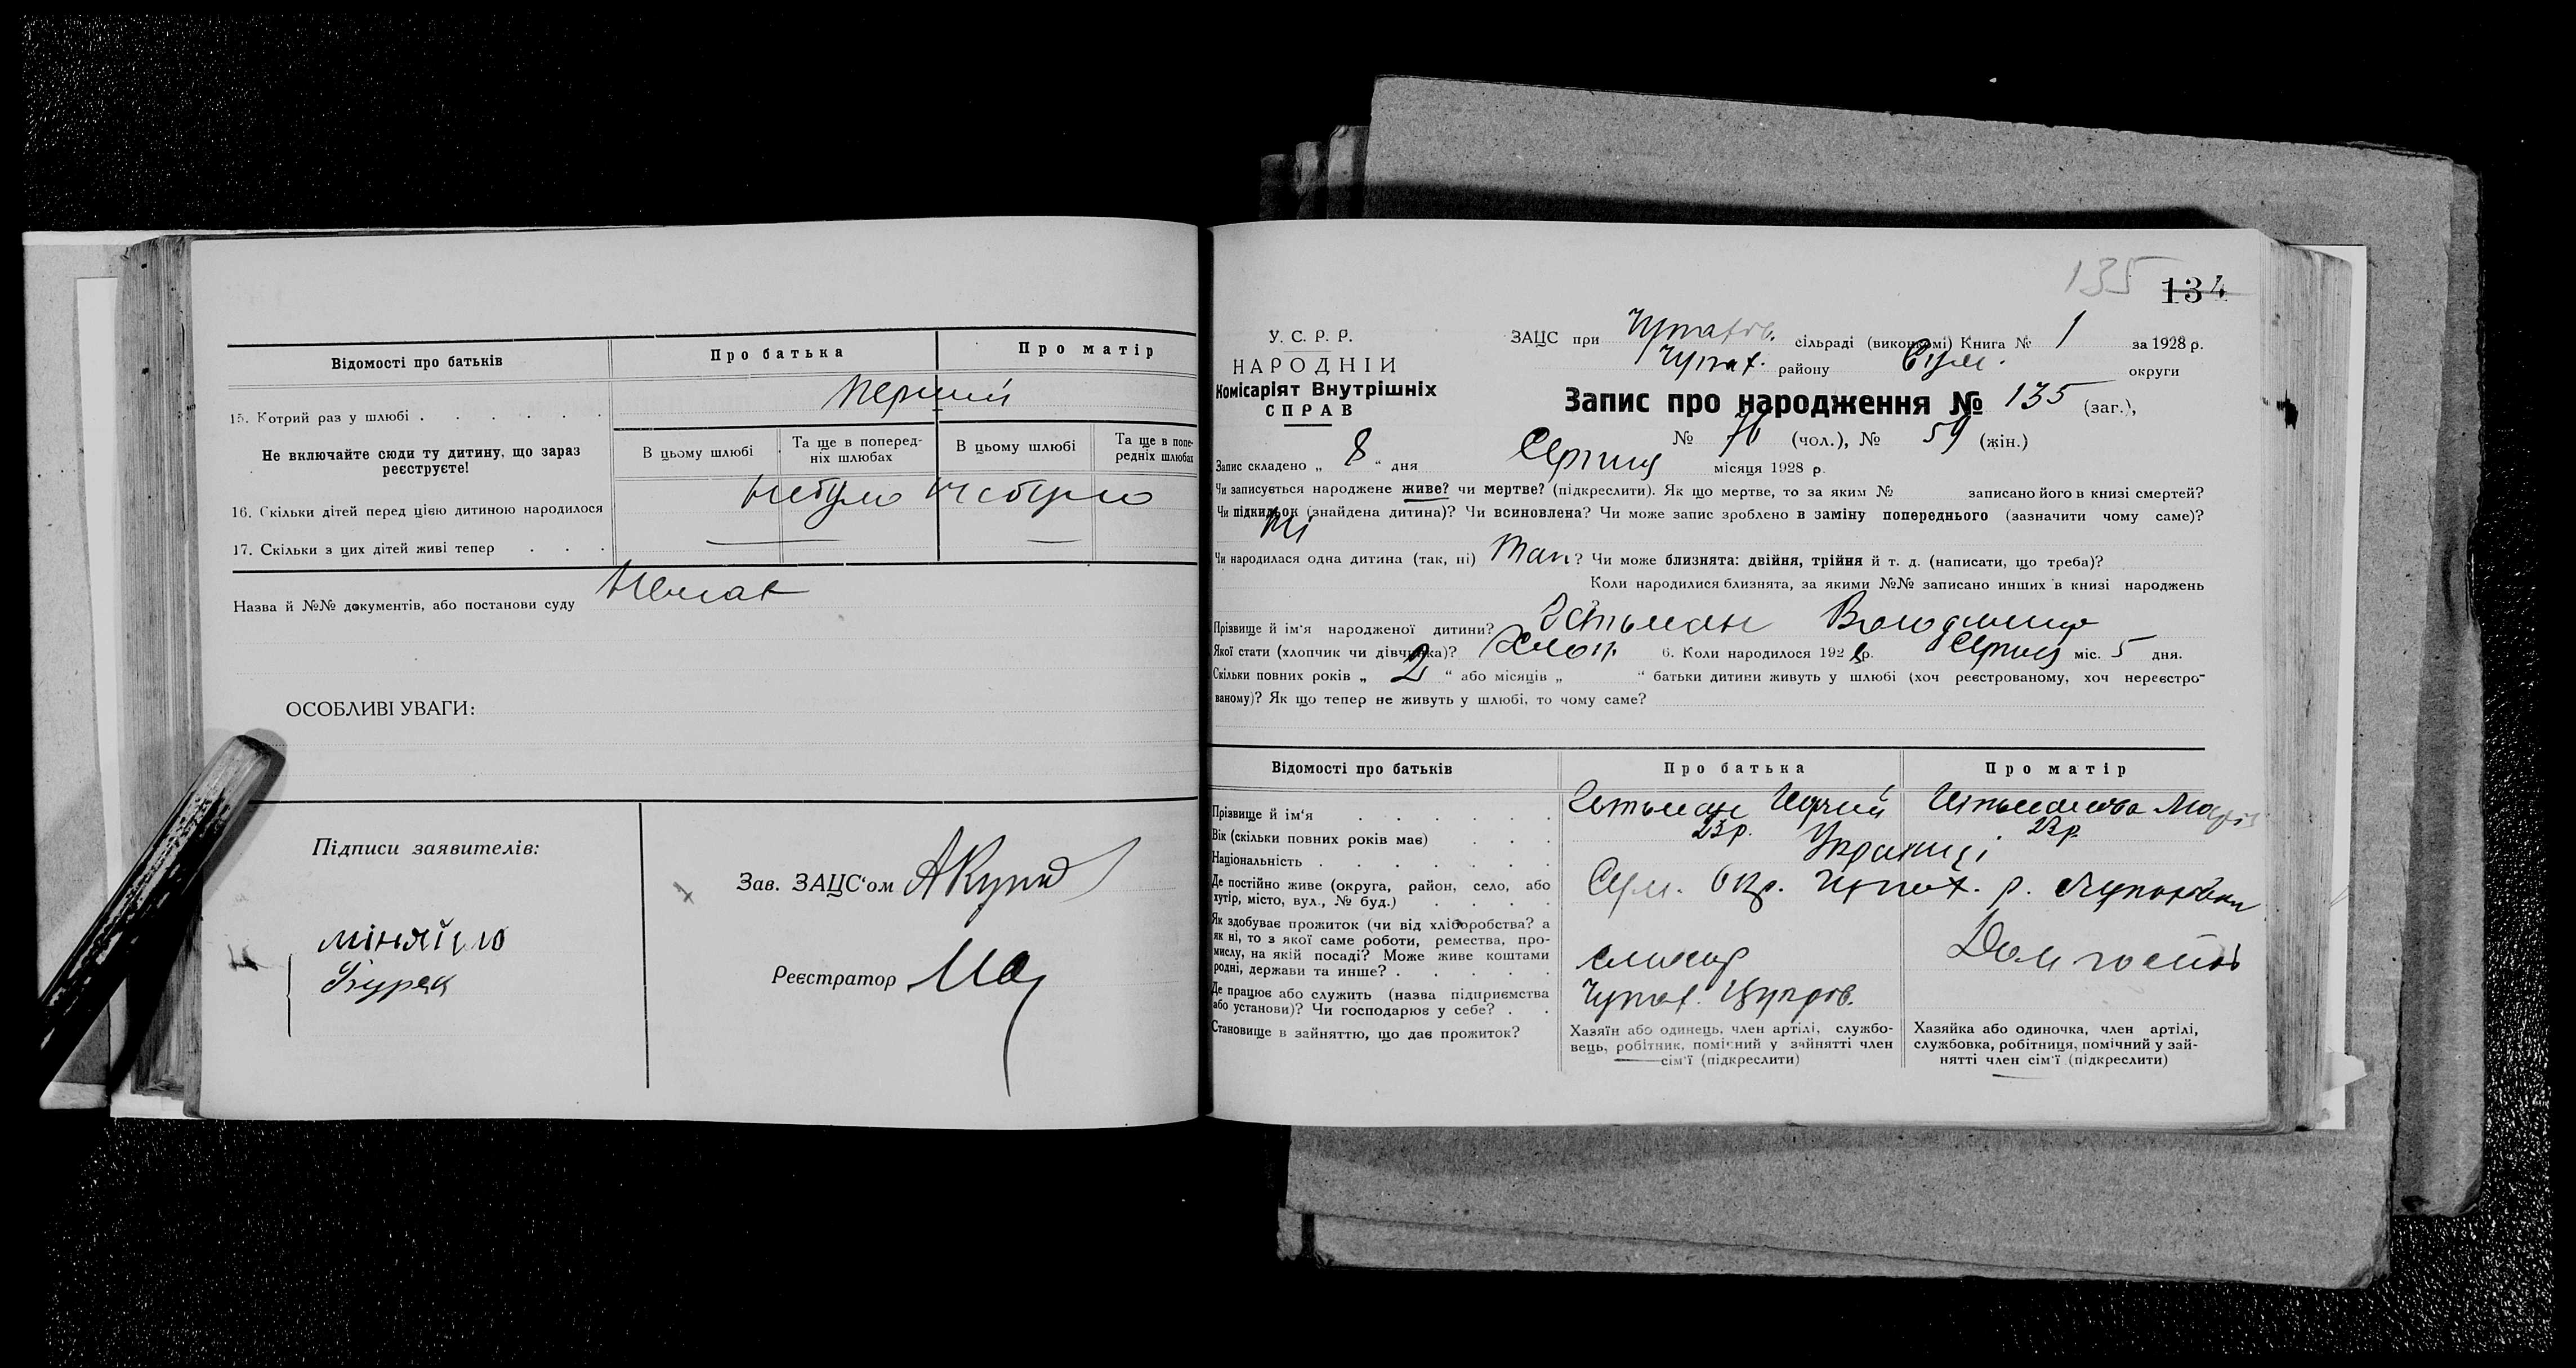 Відомості про батьків
Про батька
Про матір
15. Котрий раз у шлюбі
перший
Не включайте сюди ту дитину, що зараз
реєструєте!
В цьому шлюбі
Та ще в поперед-
ніх шлюбах
В цьому шлюбі
Та ще в попе-
редніх шлюбах
16. Скільки дітей перед цією дитиною народилося
небуло небуло
17. Скільки з цих дітей живі тепер
Назва й №№ документів, або постанови суду
Немає
ОСОБЛИВІ УВАГИ:
Підписи заявителів:
Зав. ЗАЦС‘ом
Реєстратор
135
134
У. С. Р. Р.
НАРОДНІЙ
Комісаріят Внутрішніх
СПРАВ
ЗАЦС при сільраді (виконкомі) Книга № 1 за 1928 р.
району Сум. округи
Запис про народження № 135 (заг.),
№ 76 (чол.), № 59 (жін.)
Запис складено „ 8 “ дня Серпня місяця 1928 р.
Чи записується народжене живе? чи мертве? (підкреслити). Як що мертве, то за яким № записано його в книзі смертей?
Чи підкидьок (знайдена дитина)? Чи всиновлена? Чи може запис зроблено в заміну попереднього (зазначити чому саме)?
Ні
Чи народилася одна дитина (так, ні) Так? Чи може близнята: двійня, трійня й т. д. (написати, що треба)?
Коли народилися близнята, за якими №№ записано инших в книзі народжень
Прізвище й ім‘я народженої дитини? Гетьман Володимир
Якої стати (хлопчик чи дівчинка)? Хлоп. 6. Коли народилося 1928 р. Серпня міс. 5 дня.
Скільки повних років „ 2 “ або місяців „ “ батьки дитини живуть у шлюбі (хоч реєстрованому, хоч нереєстро-
ваному)? Як що тепер не живуть у шлюбі, то чому саме?
Відомості про батьків
Про батька
Про матір
Прізвище й ім‘я
Гетьман
Гетьманова Марія
Вік (скільки повних років має)
23 р.
23 р.
Національність
Українці
Де постійно живе (округа, район, село, або
хутір, місто, вул., № буд.)
Сум. Окр. р.
Як здобуває прожиток (чи від хліборобства? а
як ні, то з якої саме роботи, ремества, про-
мислу, на якій посаді? Може живе коштами
родні, держави та инше?
слюсар
Дом господ
Де працює або служить (назва підприємства
або установи)? Чи господарює у себе?
Цукров.
Становище в зайняттю, що дає прожиток?
Хазяїн або одинець, член артілі, службо-
вець, робітник, помічний у зайнятті член
сім‘ї (підкреслити)
Хазяйка або одиночка, член артілі,
службовка, робітниця, помічний у зай-
нятті член сім‘ї (підкреслити)